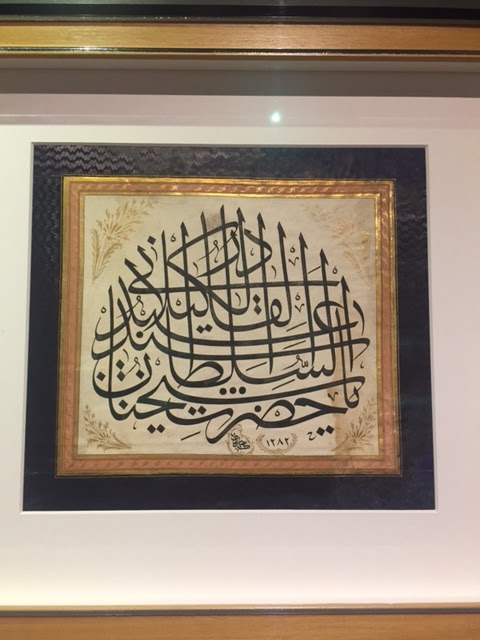 يا حضرت شيخنا السلطان سيد عبد القادر الكيلاني
١٢٨٢